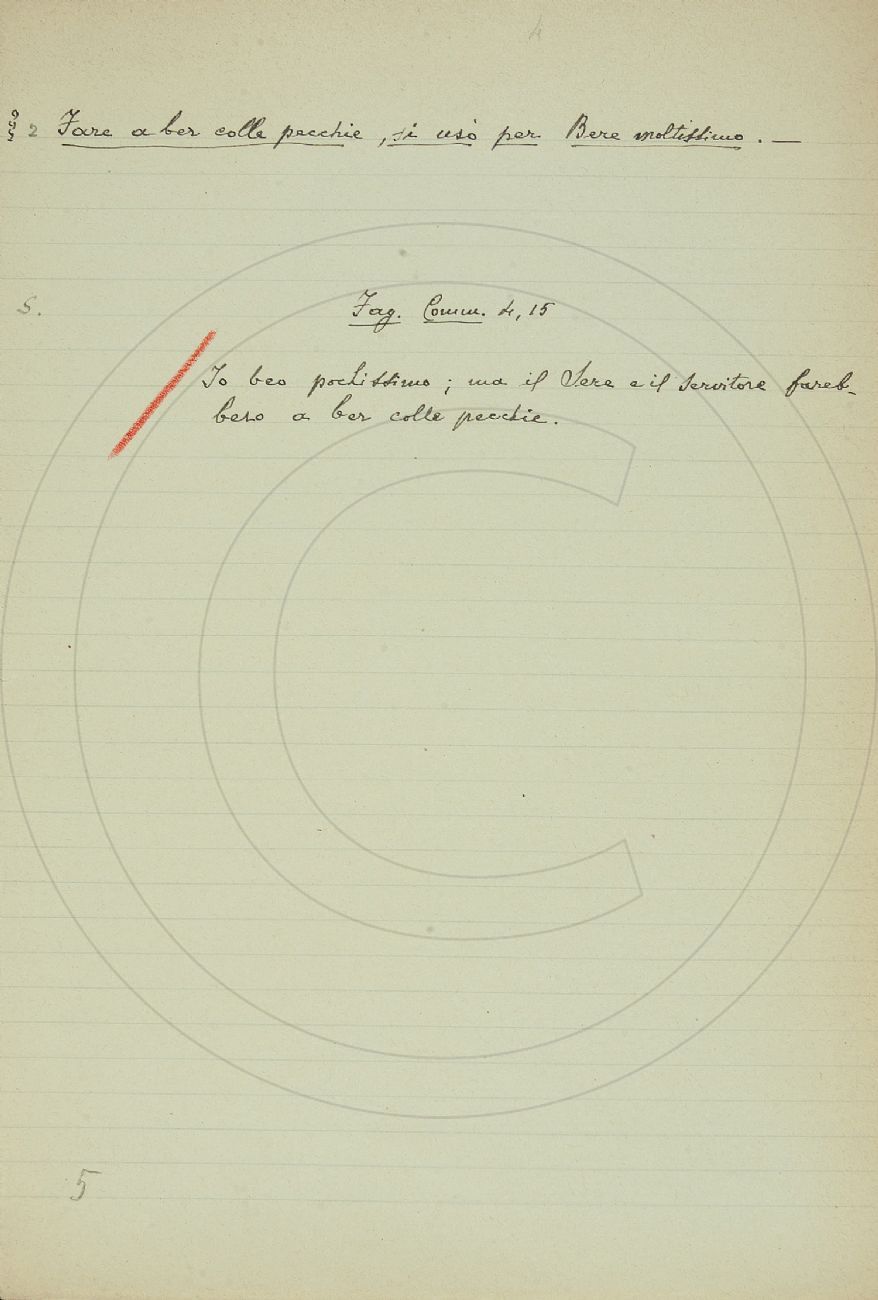 4
§ 2 Fare a ber colle pecchie, si usò per Bere moltissimo. —
S. Fag. Comm. 4, 15
Io beo pochissimo; ma il Sere e il servitore fareb-
bero a ber colle pecchie.
5